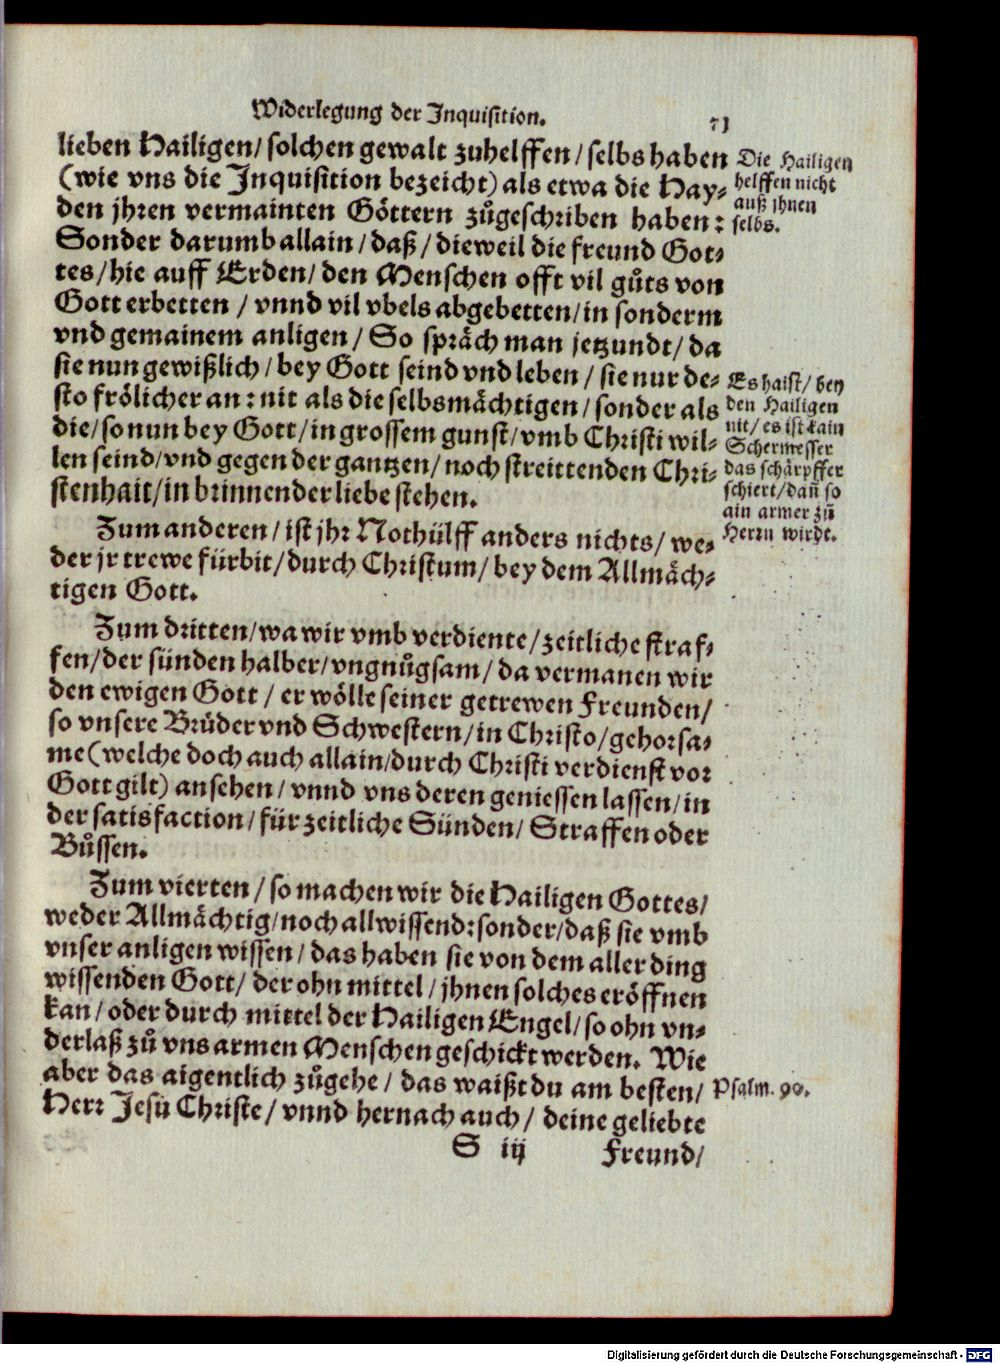 Widerlegung der Inquisition.
71
lieben Hailigen/ solchen gewalt zuhelffen/ selbs haben
(wie vns die Inquisition bezeicht) als etwa die Hay⸗
den jhren vermainten Göttern zůgeschriben haben:
Sonder darumb allain/ daß/ dieweil die freund Got⸗
tes/ hie auff Erden/ den Menschen offt vil gůts von
Gott erbetten / vnnd vil vbels abgebetten/ in sonderm
vnd gemainem anligen/ So spräch man jetzundt/ da
sie nun gewißlich/ bey Gott seind vnd leben/ sie nur de⸗
sto frölicher an: nit als die selbsmächtigen/ sonder als
die/ so nun bey Gott/ in grossem gunst/ vmb Christi wil⸗
len seind/ vnd gegen der gantzen/ noch streittenden Chri⸗
stenhait/ in brinnender liebe stehen.
Die Hailigen
helffen nicht
auß jhnen
selbs.
Es haist/ bey
den Hailigen
nit/ es ist kain
Schermesser
das schärpffer
schiert/ dañ so
ain armer zů
Herrn wirdt.
Zum anderen/ ist jhr Nothülff anders nichts/ we⸗
der jr trewe fürbit/ durch Christum/ bey dem Allmäch⸗
tigen Gott.
Zum dritten/ wa wir vmb verdiente/ zeitliche straf⸗
fen/ der sünden halber/ vngnůgsam/ da vermanen wir
den ewigen Gott / er wölle seiner getrewen Freunden/
so vnsere Brůder vnd Schwestern/ in Christo/ gehorsa⸗
me (welche doch auch allain/ durch Christi verdienst vor
Gott gilt) ansehen/ vnnd vns deren geniessen lassen/ in
der satisfaction/ für zeitliche Sünden/ Straffen oder
Bůssen.
Zum vierten/ so machen wir die Hailigen Gottes/
weder Allmächtig/ noch allwissend: sonder/ daß sie vmb
vnser anligen wissen/ das haben sie von dem aller ding
wissenden Gott/ der ohn mittel/ jhnen solches eröffnen
kan/ oder durch mittel der Hailigen Engel/ so ohn vn⸗
derlaß zů vns armen Menschen geschickt werden. Wie
aber das aigentlich zůgehe/ das waißt du am besten/
Herr Jesu Christe/ vnnd hernach auch/ deine geliebte
Psalm. 90.
S iij
Freund/
Digitalisierung gefördert durch die Deutsche Forschungsgemeinschaft - DFG